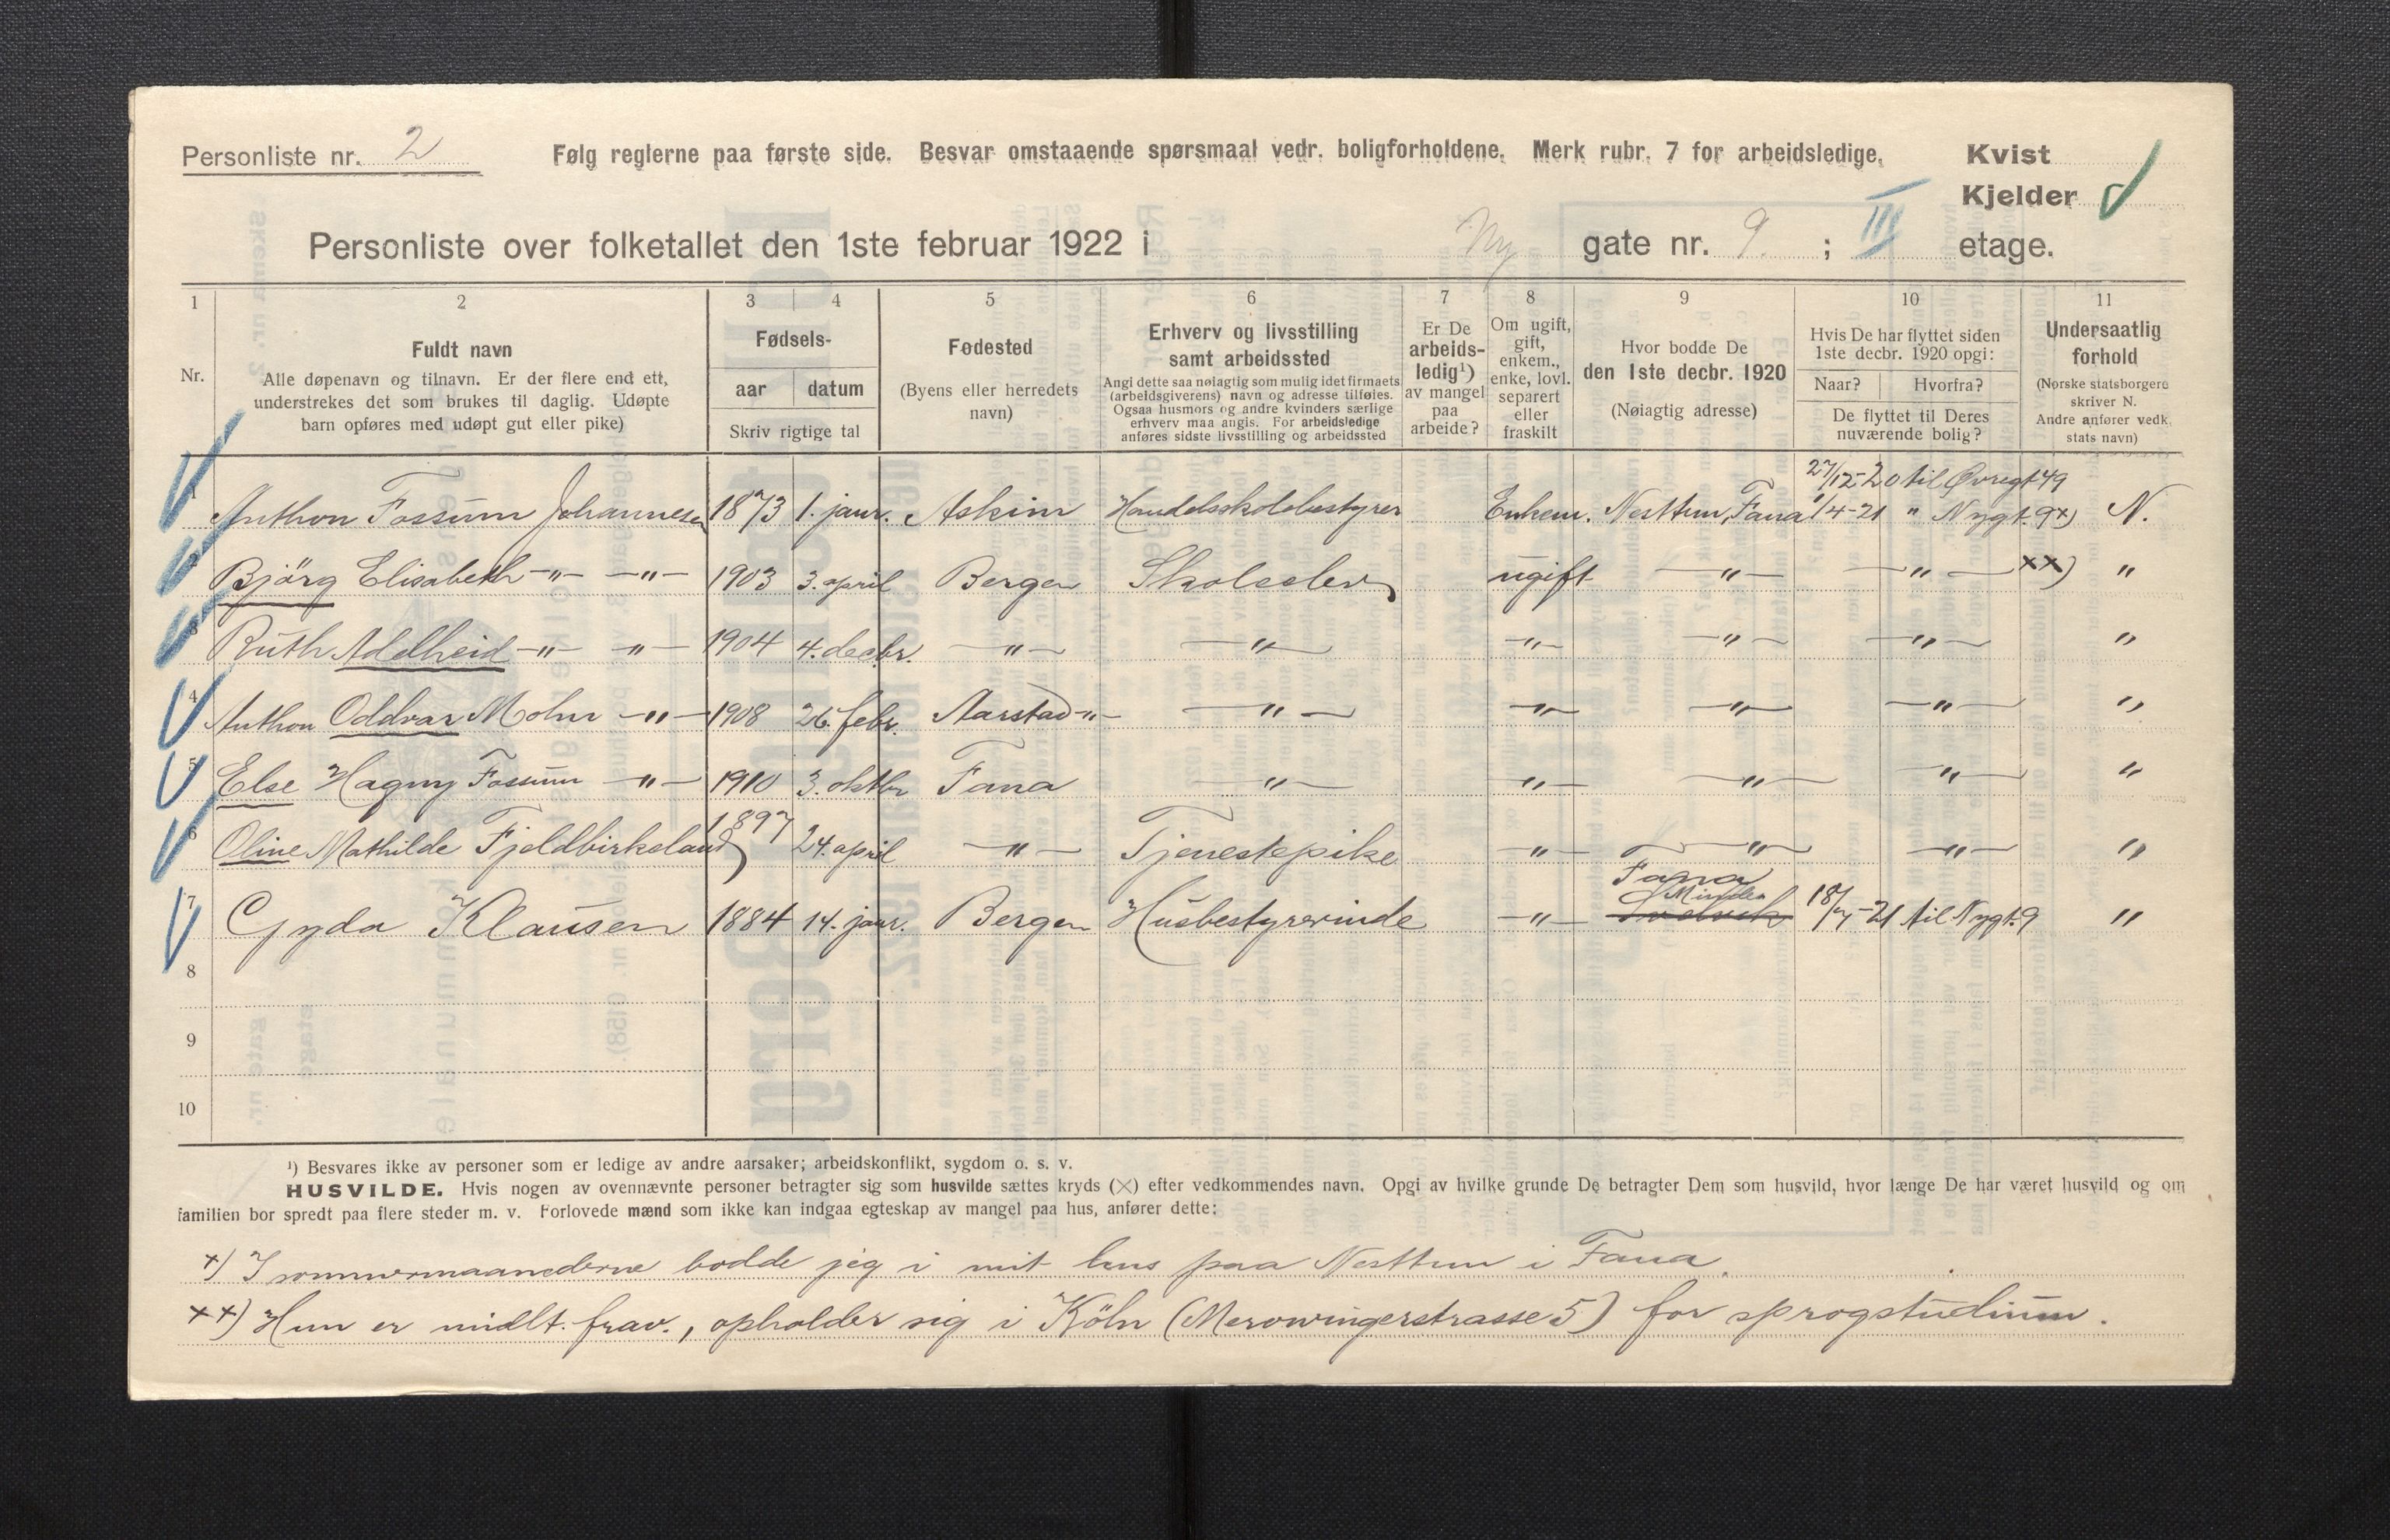 Personliste nr. 2 Følg reglerne paa første side. Besvar omstaaende spørsmaal vedr. boligforholdene. Merk rubr. 7 for arbeidsledige. Kvist
Kjelder
Personliste over folketallet den 1ste februar 1922 i Ny gate nr. 9. ; III etage.
1 2 3 4 5 6 7 8 9 10 11
Nr.
Fuldt navn
Alle døpenavn og tilnavn. Er der flere end ett,
understrekes det som brukes til daglig. Udøpte
barn opføres med udøpt gut eller pike)
Fødsels-
aar datum
Skriv rigtige tal
Fødested
(Byens eller herredets
navn)
Erhverv og livsstilling
samt arbeidssted
Angi dette saa nøiagtig som mulig idet firmaets
(arbeidsgiverens) navn og adresse tilføies.
Ogsaa husmors og andre kvinders særlige
erhverv maa angis. For arbeidsledige
anføres sidste livsstilling og arbeidssted
Er De
arbeids-
ledig¹)
av mangel
paa
arbeide?
Om ugift,
gift,
enkem.,
enke, lovl.
separert
eller
fraskilt
Hvor bodde De
den 1ste decbr. 1920
(Nøiagtig adresse)
Hvis De har flyttet siden
1ste decbr. 1920 opgi:
Naar? Hvorfra?
De flyttet til Deres
nuværende bolig?
Undersaatlig
forhold
(Norske statsborgere
skriver N.
Andre anfører vedk.
stats navn)
27/12-20 til Øvregt 49
1 Anthon Fossum Johannesen 1873 1. janr. Askim Handelsskolebestyrer Enkem. Nesttun, Fana 1/4-21 " Nygt. 9 x) N.
2 Bjørg Elisabeth -"- -"- 1903 3. april Bergen Skoleelev ugift -"- -"- xx) "
3 Ruth Adelheid -"- "- 1904 4. decbr. -"- -"- -"- -"- -"- "
4 Anthon Oddvar Mohn -"- 1908 26. febr. Aarstad -"- -"- -"- -"- -"- "
5 Else Hagny Fossum -"- 1910 3. oktbr Fana -"- -"- -"- -"- "
6 Oline Mathilde Fjeldbirkeland 1897 24. april -"- Tjenestepike -"- -"- -"- "
Fana
Minden
7 Gyda Klausen 1884 14. janr. Bergen Husbestyrerinde -"- 18/7-21 til Nygt. 9 "
8
9
10
¹) Besvares ikke av personer som er ledige av andre aarsaker; arbeidskonflikt, sygdom o. s. v.
HUSVILDE. Hvis nogen av ovennævnte personer betragter sig som husvilde sættes kryds (×) efter vedkommendes navn. Opgi av hvilke grunde De betragter Dem som husvild, hvor længe De har været husvild og om
familien bor spredt paa flere steder m. v. Forlovede mænd som ikke kan indgaa egteskap av mangel paa hus, anfører dette:
x) I sommermaanederne bodde jeg i mit hus paa Nesttun i Fana.
xx) Hun er midlt. frav., opholder sig i Köln (Merowingerstrasse 5) for sprogstudium.